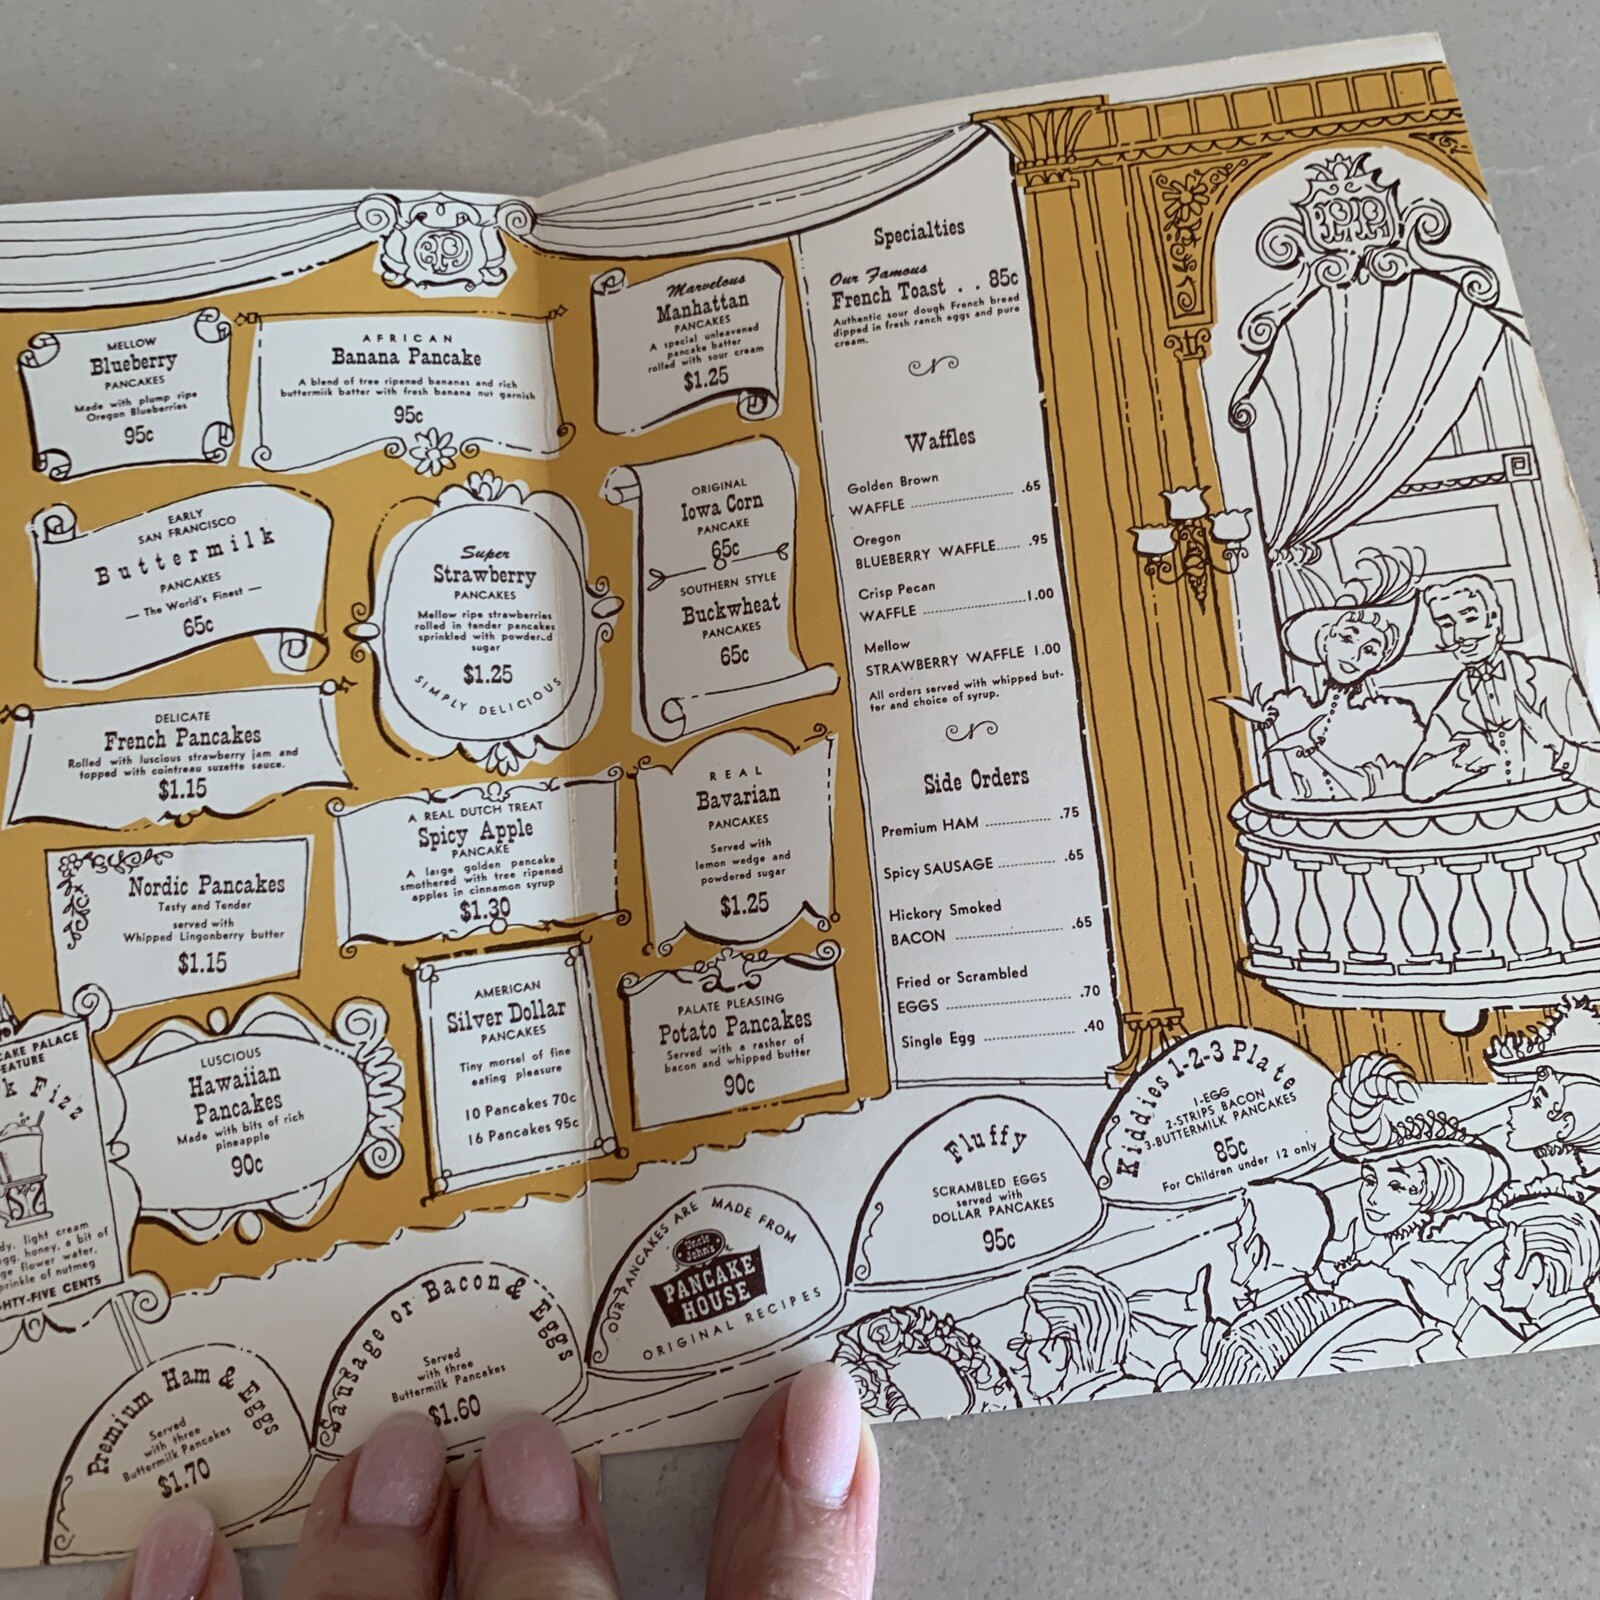 MELLOW
Blueberry
PANCAKES
Made with plump ripe
Oregon Blueberries
95c
AFRICAN
Banana Pancake
A blend of tree ripened bananas and rich
buttermilk batter with fresh banana nut garnish
95c
Marvelous
Manhattan
PANCAKES
A special unleavened
pancake batter
rolled with sour cream
$1.25
EARLY
SAN FRANCISCO
Buttermilk
PANCAKES
— The World's Finest —
65c
Super
Strawberry
PANCAKES
Mellow ripe strawberries
rolled in tender pancakes
sprinkled with powdered
sugar
$1.25
SIMPLY DELICIOUS
ORIGINAL
Iowa Corn
PANCAKE
65c
SOUTHERN STYLE
Buckwheat
PANCAKES
65c
DELICATE
French Pancakes
Rolled with luscious strawberry jam and
topped with cointreau suzette sauce.
$1.15
A REAL DUTCH TREAT
Spicy Apple
PANCAKE
A large golden pancake
smothered with tree ripened
apples in cinnamon syrup
$1.30
REAL
Bavarian
PANCAKES
Served with
lemon wedge and
powdered sugar
$1.25
Nordic Pancakes
Tasty and Tender
served with
Whipped Lingonberry butter
$1.15
AMERICAN
Silver Dollar
PANCAKES
Tiny morsel of fine
eating pleasure
10 Pancakes 70c
16 Pancakes 95c
PALATE PLEASING
Potato Pancakes
Served with a rasher of
bacon and whipped butter
90c
CAKE PALACE
FEATURE
k Fizz
dy, light cream
egg, honey, a bit of
ge flower water,
prinkle of nutmeg
HTY-FIVE CENTS
LUSCIOUS
Hawaiian
Pancakes
Made with bits of rich
pineapple
90c
Specialties
Our Famous
French Toast . . 85c
Authentic sour dough French bread
dipped in fresh ranch eggs and pure
cream.
Waffles
Golden Brown
WAFFLE .65
Oregon
BLUEBERRY WAFFLE .95
Crisp Pecan
WAFFLE 1.00
Mellow
STRAWBERRY WAFFLE 1.00
All orders served with whipped but-
ter and choice of syrup.
Side Orders
Premium HAM .75
Spicy SAUSAGE .65
Hickory Smoked
BACON .65
Fried or Scrambled
EGGS .70
Single Egg .40
Premium Ham & Eggs
Served
with three
Buttermilk Pancakes
$1.70
Sausage or Bacon & Eggs
Served
with three
Buttermilk Pancakes
$1.60
OUR PANCAKES ARE MADE FROM
Uncle
John's
PANCAKE
HOUSE
ORIGINAL RECIPES
Fluffy
SCRAMBLED EGGS
served with
DOLLAR PANCAKES
95c
Kiddies 1-2-3 Plate
1-EGG
2-STRIPS BACON
3-BUTTERMILK PANCAKES
85c
For Children under 12 only